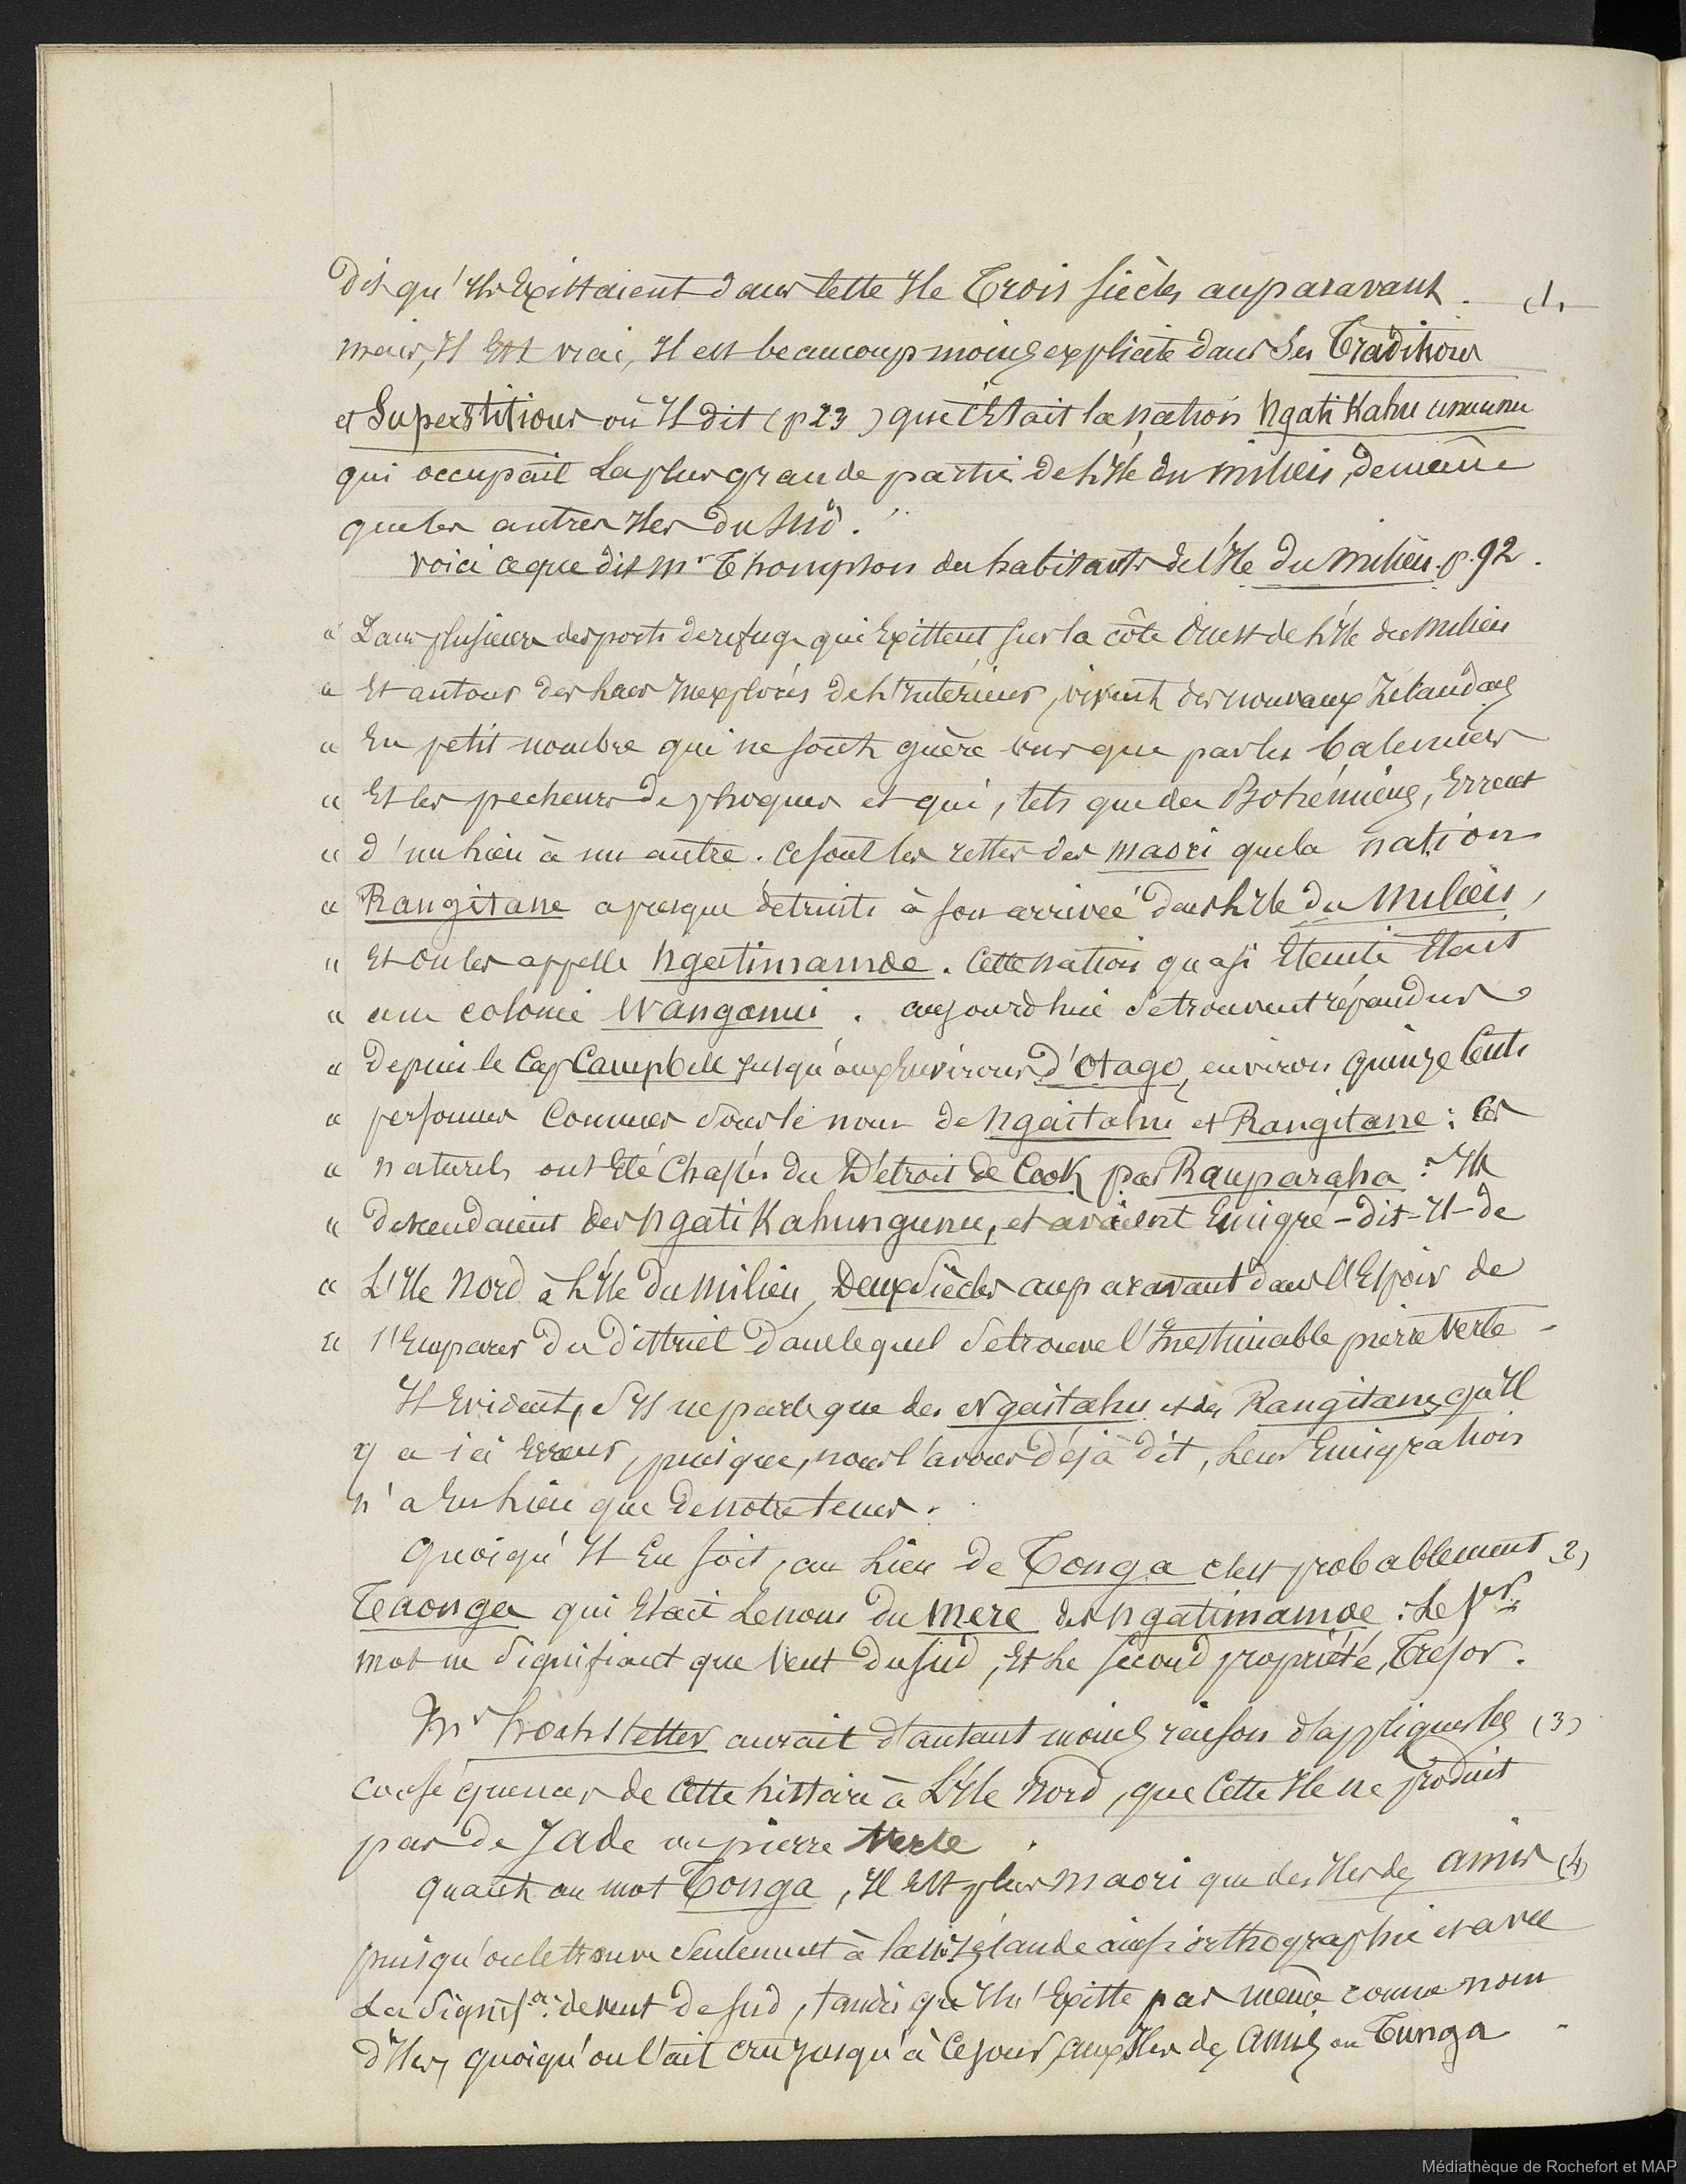 dit qu'ils Existaient dans Cette Ile Trois Siècles auparavant. (1)
mais, Il Est vrai, Il est beaucoup moins explicite dans Ses Traditions
et Superstitions où Il dit (p 23) que c'Etait la nation Ngati Kahu ununu
qui occupait La plus grande partie de L'Ile du milieu, de même
que les autres Iles du Sud.
voici ce que dit Mr Thompson des habitants de l'Ile du Milieu. p. 92.
" Dans plusieurs des ports de refuge qui Existent Sur la côte Ouest de L'Ile du Milieu
" Et autour des Lacs Inexplorés de L'Intérieur, vivent des nouveaux Zélandais
" En petit nombre qui ne sont guère vus que par les baleiniers
" Et les pecheurs de phoques et qui, tels que des Bohémiens, Errent
" d'un lieu à un autre. Ce sont les restes des maori que la nation
" Rangitane a presque détruits à son arrivée dans L'Ile du Milieu,
" Et on les appelle Ngatimamoe. Cette nation quasi Eteinte Etait
" une colonie Wanganui. aujourdhui Se trouvent répandus
" depuis le Cap Campbell Jusqu'aux Environs d'Otago, environ quinze Cents
" personnes Connues Sous le nom de Ngaitahu et Rangitane : Ces
" naturels ont Eté Chassés du Détroit de Cook par Rauparaha : Ils
" descendaient des Ngati Kahungunu, et avaient Emigré - dit-Il - de
" L'Ile Nord à L'Ile du Milieu, Deux Siècles auparavant dans l'Espoir de
" s'Emparer du district dans lequel Se trouve l'Inestimable pierre Verte -
Il Evident, S'Il ne parle que des Ngaitahu et des Rangitane, qu'Il
y a ici Erreur, puisque, nous l'avons déjà dit, Leur Emigration
n'a Eu Lieu que de notre tems.
Quoiqu'Il En soit, au Lieu de Tonga c'est probablement (2)
Teaonga qui Etait Le nom du mere des Ngatimamoe : Le pr.
mot ne Signifiant que Vent du Sud, Et Le second propriété, Trésor.
Mr Hochstetter aurait d'autant moins raison d'appliquer les (3)
conséquences de Cette histoire à L'Ile Nord, que Cette Ile ne produit
pas de Jade ou pierre Verte.
Quant au mot Tonga, Il Est plus Maori que des Iles des amis (4)
puisqu'on le trouve Seulement à la Nlle Zélande ainsi orthographié et avec
La Signifon. de vent de Sud, tandis qu'Il n'Existe pas même comme nom
d'Iles, quoiqu'on l'ait cru Jusqu'à Ce jour, aux Iles des Amis ou Tunga
Médiathèque de Rochefort et MAP